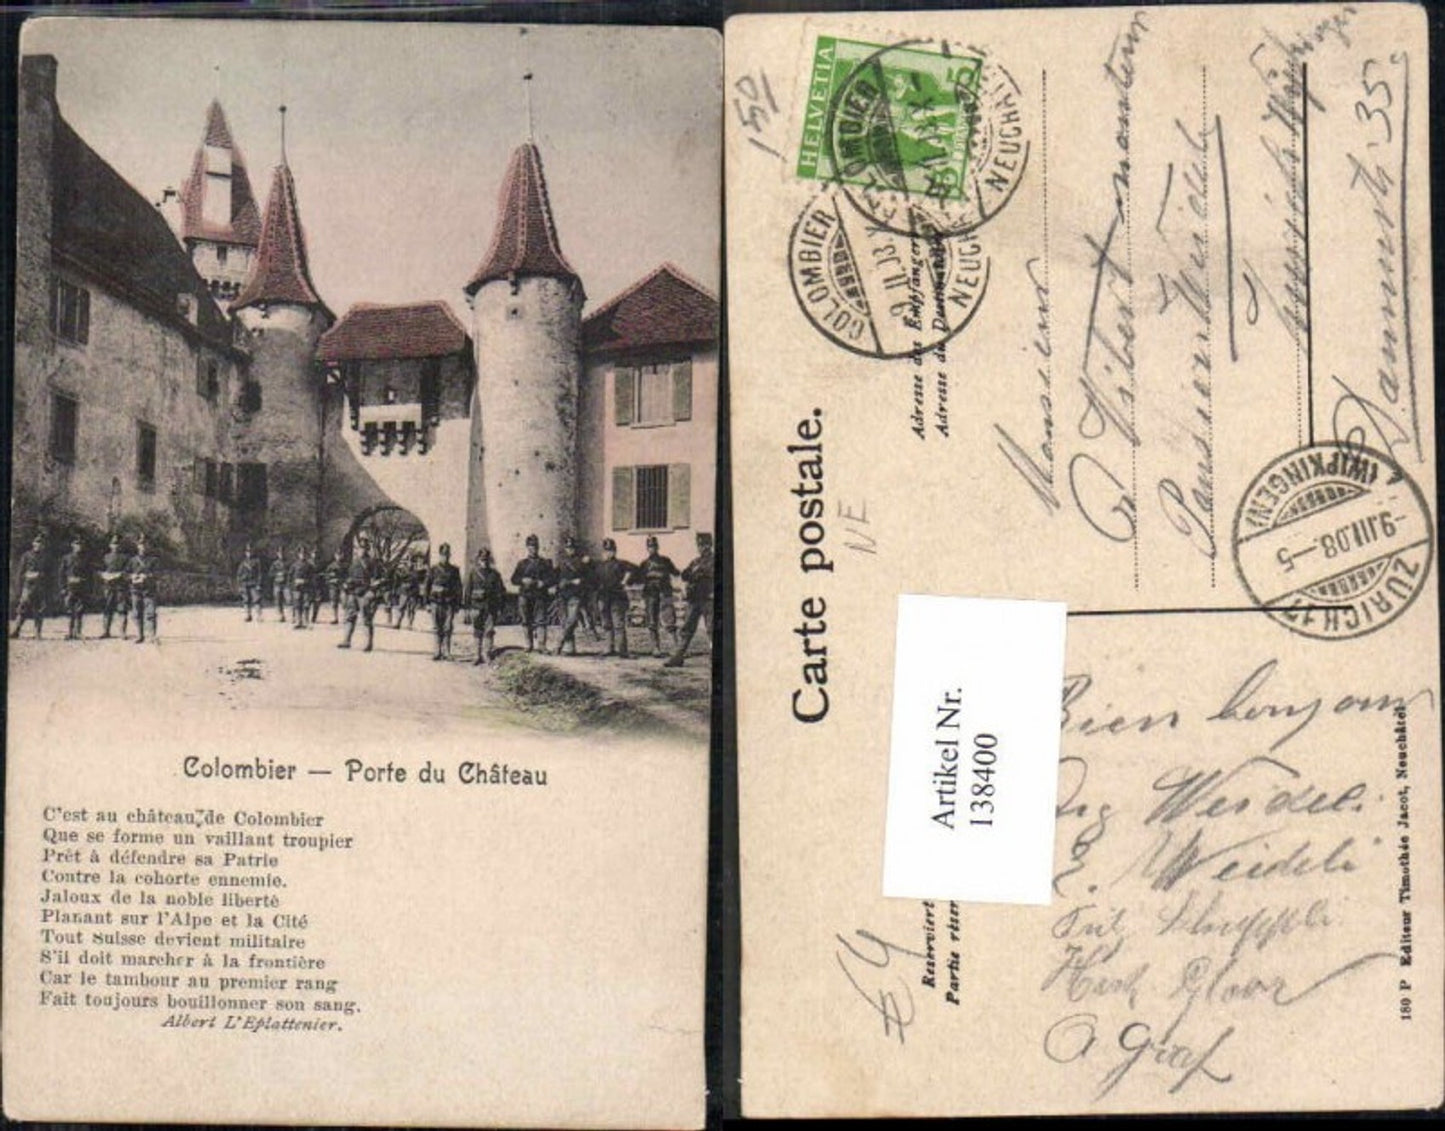 Colombier — Porte du Château
C'est au château de Colombier
Que se forme un vaillant troupier
Prêt à défendre sa Patrie
Contre la cohorte ennemie.
Jaloux de la noble liberté
Planant sur l'Alpe et la Cité
Tout Suisse devient militaire
S'il doit marcher à la frontière
Car le tambour au premier rang
Fait toujours bouillonner son sang.
Albert L'Eplattenier.
150
HELVETIA
5
COLOMBIER
NEUCHÂT
COLOMBIER
NEUCH
Carte postale.
NE
Adresse des Empfängers
Adresse du
Monsieur
Weideli
35.
ZÜRICH 17
-9.III.08.–5
(WIPKINGEN)
Artikel Nr.
138400
Reserviert
Partie réser
Bien
Weideli
Weideli
Graf
180 P Editeur Timothée Jacot, Neuchâtel